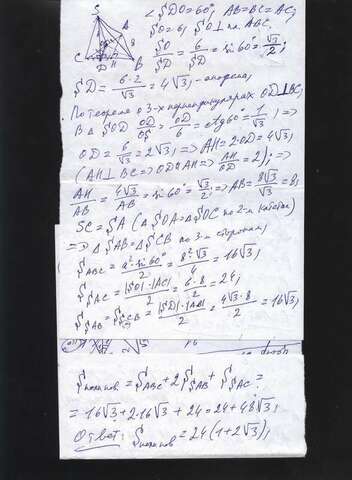 S
A
C D H B
∠SDO=60°, AB=BC=AC;
SO=6, SO⊥пл. ABC.
SO/SD = 6/SD = sin60° = √3/2;
SD = 6·2/√3 = 4√3; - апофема,
По теореме о 3-х перпендикулярах OD⊥BC;
В Δ SOD OD/OS = OD/6 = ctg60° = 1/√3; =>
OD = 6/√3 = 2√3; => AH = 2·OD = 4√3;
(AH⊥BC => OD∥AH => AH/OD = 2); =>
AH/AB = 4√3/AB = sin60° = √3/2; => AB = 8√3/√3 = 8;
SC = SA (Δ SOA = Δ SOC по 2-м катетам)
=> Δ SAB = Δ SCB по 3-м сторонам;
S ABC = a²·sin60°/2 = 8²·√3/4 = 16√3;
S SAC = |SO|·|AC|/2 = 6·8/2 = 24;
S SAB = S SCB = |SD|·|AC|/2 = 4√3·8/2 = 16√3;
Sполн.пов = S ABC + 2S SAB + S SAC =
= 16√3 + 2·16√3 + 24 = 24 + 48√3;
Ответ: Sполн.пов = 24(1+2√3);